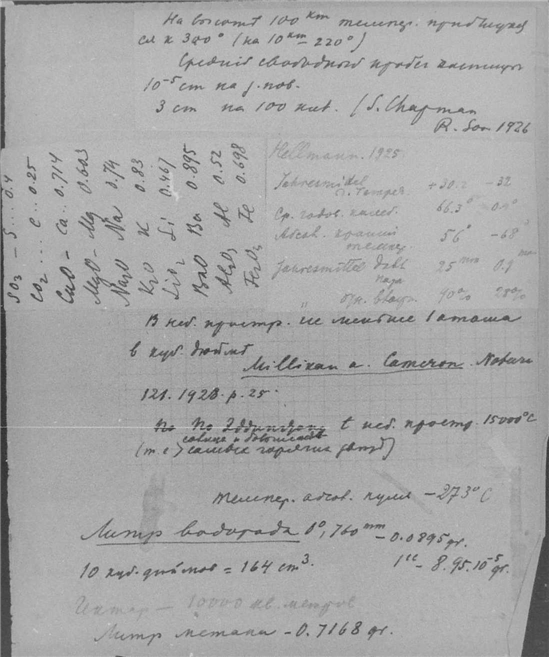 На высоте 100 km темпер. приближует
ся к 300° (на 10 km – 220°)
Средний свободный пробег частицы
10⁻⁵ cm на з. пов.
3 cm на 100 кил. (S. Chapman
R. Soc 1926
SO₃ – S... 0.4
CO₂ .... C.. 0.25
CaO – Ca.. 0.714
MgO – Mg 0.603
Na₂O Na 0.74
K₂O K 0.83
LiO₂ Li 0.467
BaO Ba 0.895
Al₂O₃ Al 0.52
Fe₂O₃ Fe 0.698
Hellmann. 1925.
Jahresmittel
d. Temper. +30.2 –32
Ср. годов. колеб. 66.3° 0.4°
Абсол. крайний
темпер. 56° –68°
Jahresmittel давл.
пара 25 mm 0.1 mm
отн. влажн. 90% 28%
В неб. простр. не меньше 1 атома
в куб. дюйме
Millikan a. Cameron. Nature
121. 1928. p. 25.
По Эддингтону t неб. простр. 15000°C
(т е)
самых горячих звезд)
темпер. абсол. нуля –273°C
Литр водорода 0°, 760 mm – 0.0895 gr.
10 куб. дюймов = 164 cm³. 1 cc – 8.95.10⁻⁵ gr.
Гектар – 10000 кв. метров
Литр метана – 0.7168 gr.